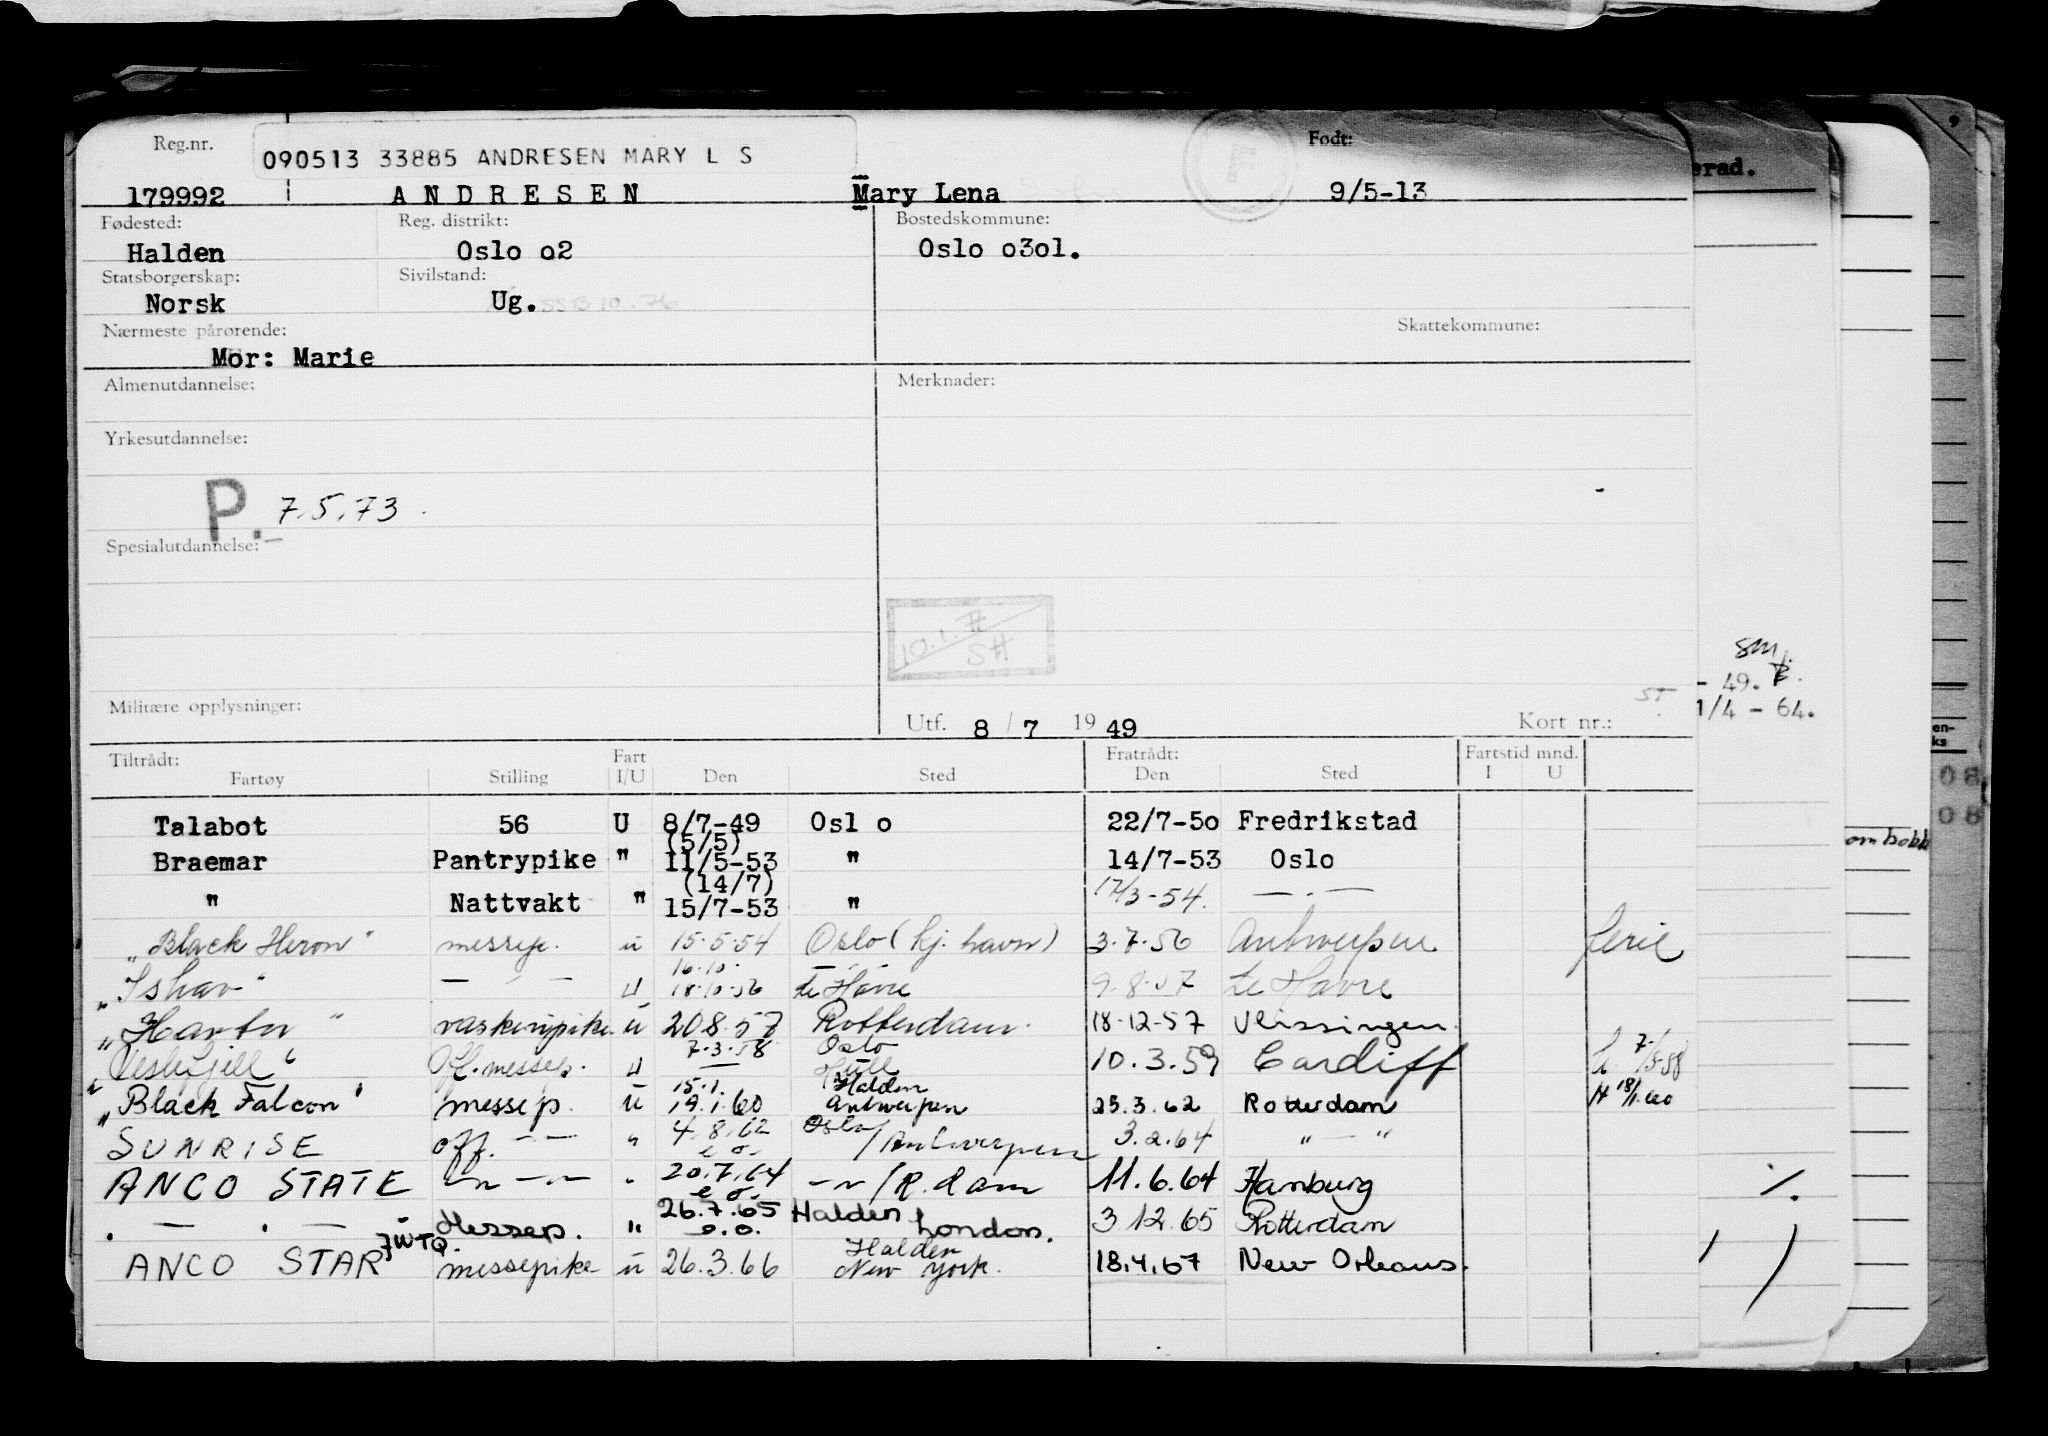 Reg.nr.
090513 33885 ANDRESEN MARY L S
Født:
179992 ANDRESEN Mary Lena 9/5-13
Fødested: Reg. distrikt: Bostedskommune:
Halden Oslo o2 Oslo o3o1.
Statsborgerskap: Sivilstand:
Norsk Ug. SSB 10.76
Nærmeste pårørende: Skattekommune:
Mor: Marie
Almenutdannelse: Merknader:
Yrkesutdannelse:
P. 7.5.73.
Spesialutdannelse:
10.1.
SH
Militære opplysninger: Utf. 8 / 7 19 49 Kort nr.:
Tiltrådt: Fart Fratrådt: Fartstid mnd.
Fartøy Stilling I/U Den Sted Den Sted I U
Talabot 56 U 8/7-49 Osl o 22/7-5o Fredrikstad
(5/5)
Braemar Pantrypike " 11/5-53 " 14/7-53 Oslo
(14/7)
" Nattvakt " 15/7-53 " 17/3-54. — . —
"Black Heron" messep. u 15.5.54 Oslo (hj. havn) 3.7.56 Antwerpen ferie
16.10.
"Ishav" — " — u 18.10.56 Le Havre 9.8.57 Le Havre
vaskeripike. u 20.8.57 Rotterdam. 18-12-57 Vlissingen.
7.3.58 Oslo
"Veslefjell" Off. messep. u — Hull 10.3.59 Cardiff
15.1. Halden
"Black Falcon" messep. u 19.1.60 Antwerpen 23.3.62 Rotterdam H 18/1.60
SUNRISE off. — " — " 4.8.62 e o. Oslo / Antwerpen 3.2.64 " — "
ANCO STATE — " — " 20.7.64 e o. — " — / R.dam 11.6.64 Hamburg
. — . — Messep. " 26.7.65 e.o. Halden London. 3.12.65 Rotterdam
JWTQ. Halden
ANCO STAR messepike u 26.3.66 New York. 18.4.67 New Orleans.
erad.
sm.
- 49.
1/4 - 64.
en-
ks
08
08
om bokk